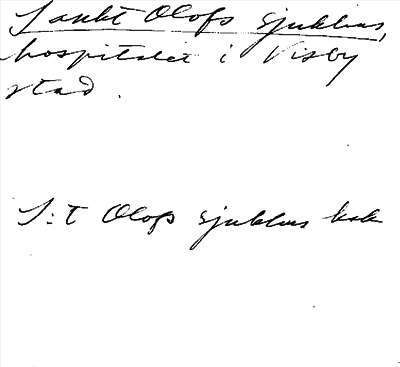 Sankt Olofs sjukhus,
hospitalet i Visby
stad.
S:t Olofs sjukhus